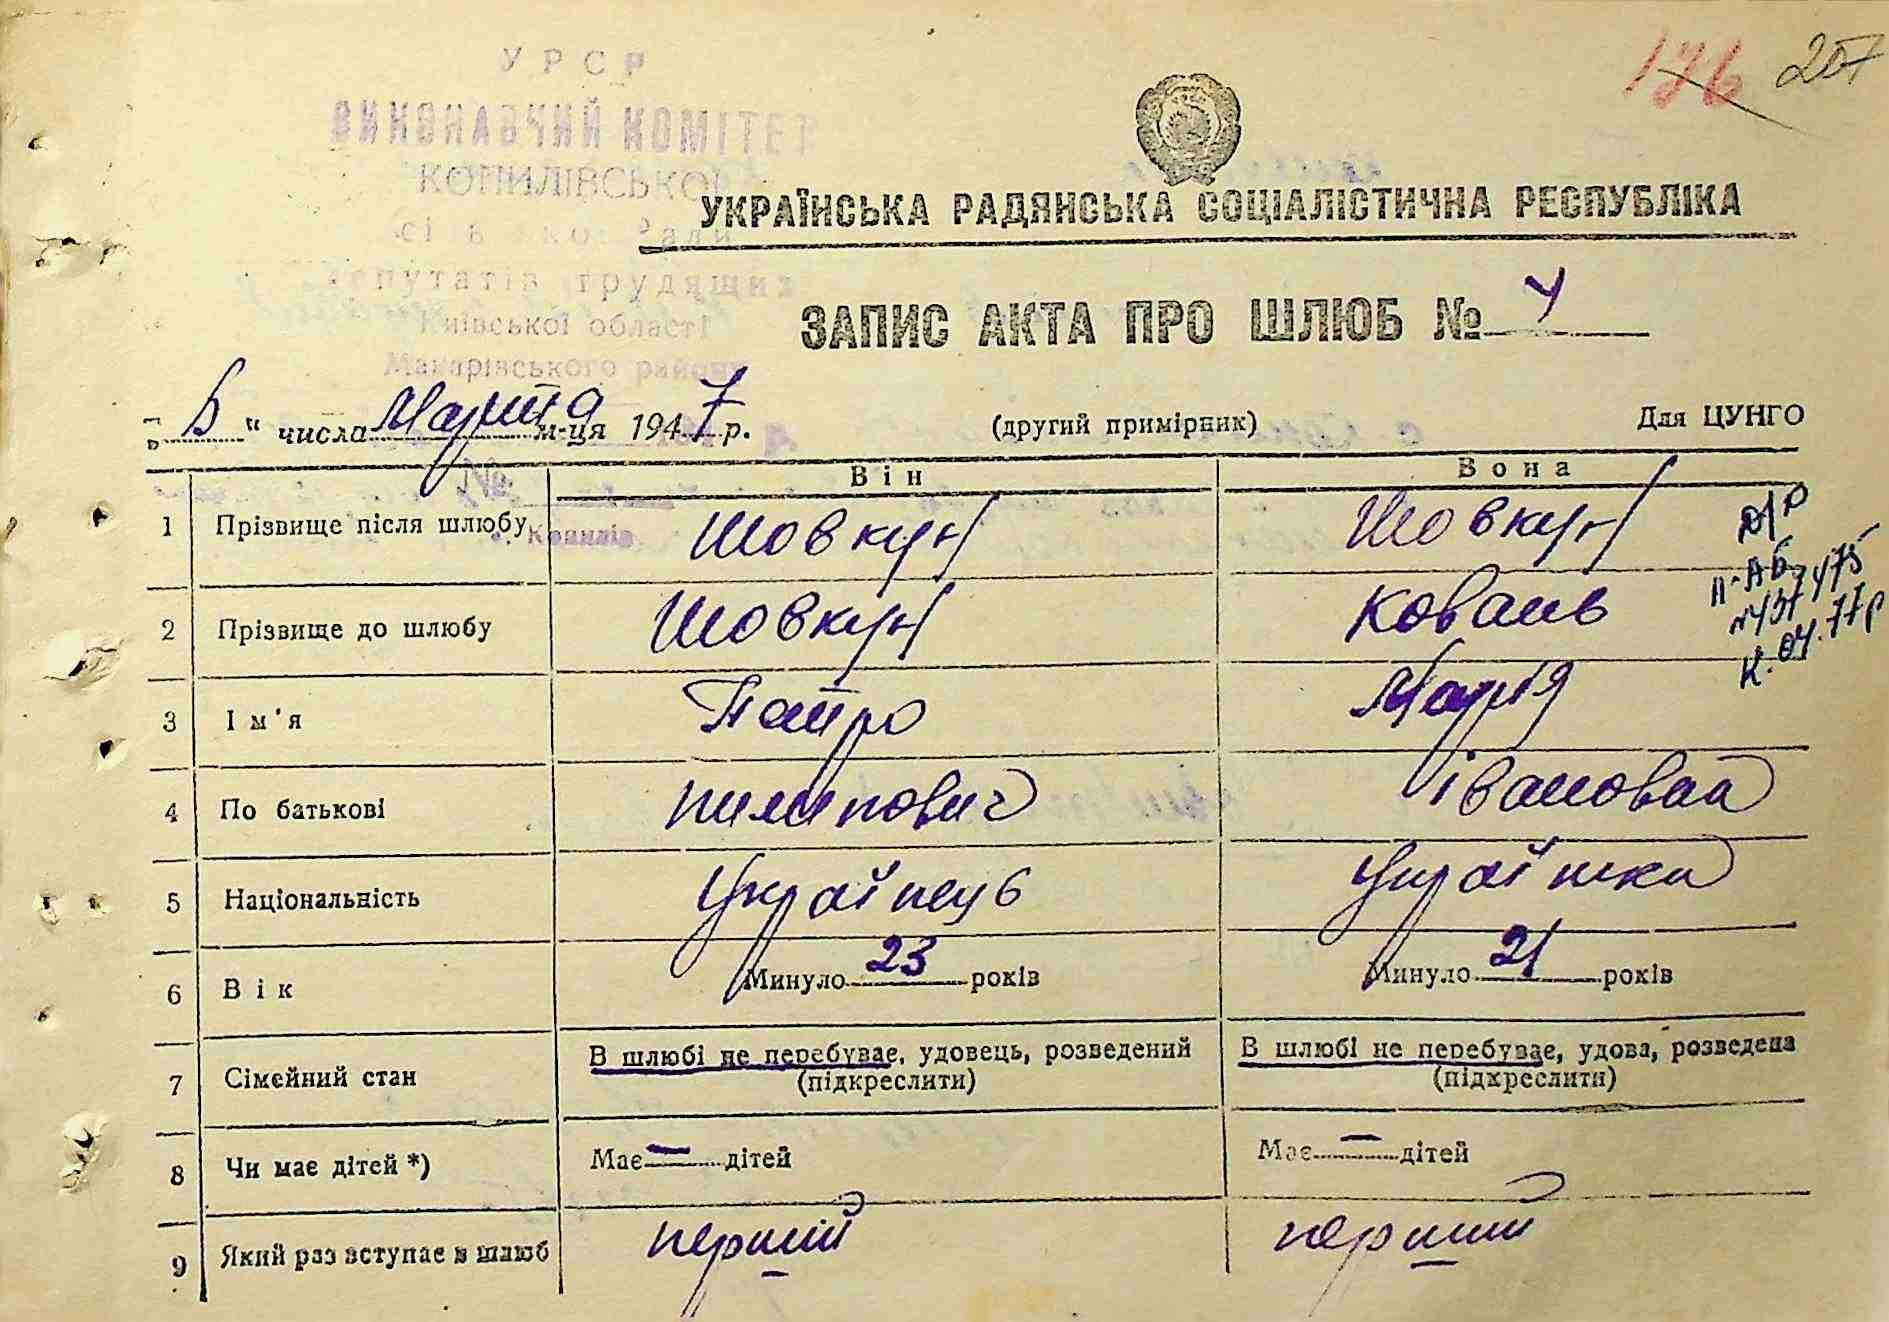 176 207
УРСР
ВИКОНАВЧИЙ КОМІТЕТ
КОПИЛІВСЬКОЇ
сільської Ради
депутатів трудящих
Київської області
Макарівського району
УКРАЇНСЬКА РАДЯНСЬКА СОЦІАЛІСТИЧНА РЕСПУБЛІКА
ЗАПИС АКТА ПРО ШЛЮБ № 4
"5" числа Марта м-ця 1947 р. (другий примірник) Для ЦУНГО
Він Вона
1 Прізвище після шлюбу Шовкун Шовкун
с. Копилів
2 Прізвище до шлюбу Шовкун Коваль
3 Ім'я Петро Марія
4 По батькові пилипович івановна
5 Національність Українець Українка
6 Вік Минуло 23 років Минуло 21 років
7 Сімейний стан В шлюбі не перебуває, удовець, розведений В шлюбі не перебуває, удова, розведена
(підкреслити) (підкреслити)
8 Чи має дітей *) Має — дітей Має — дітей
9 Який раз вступає в шлюб перший перший